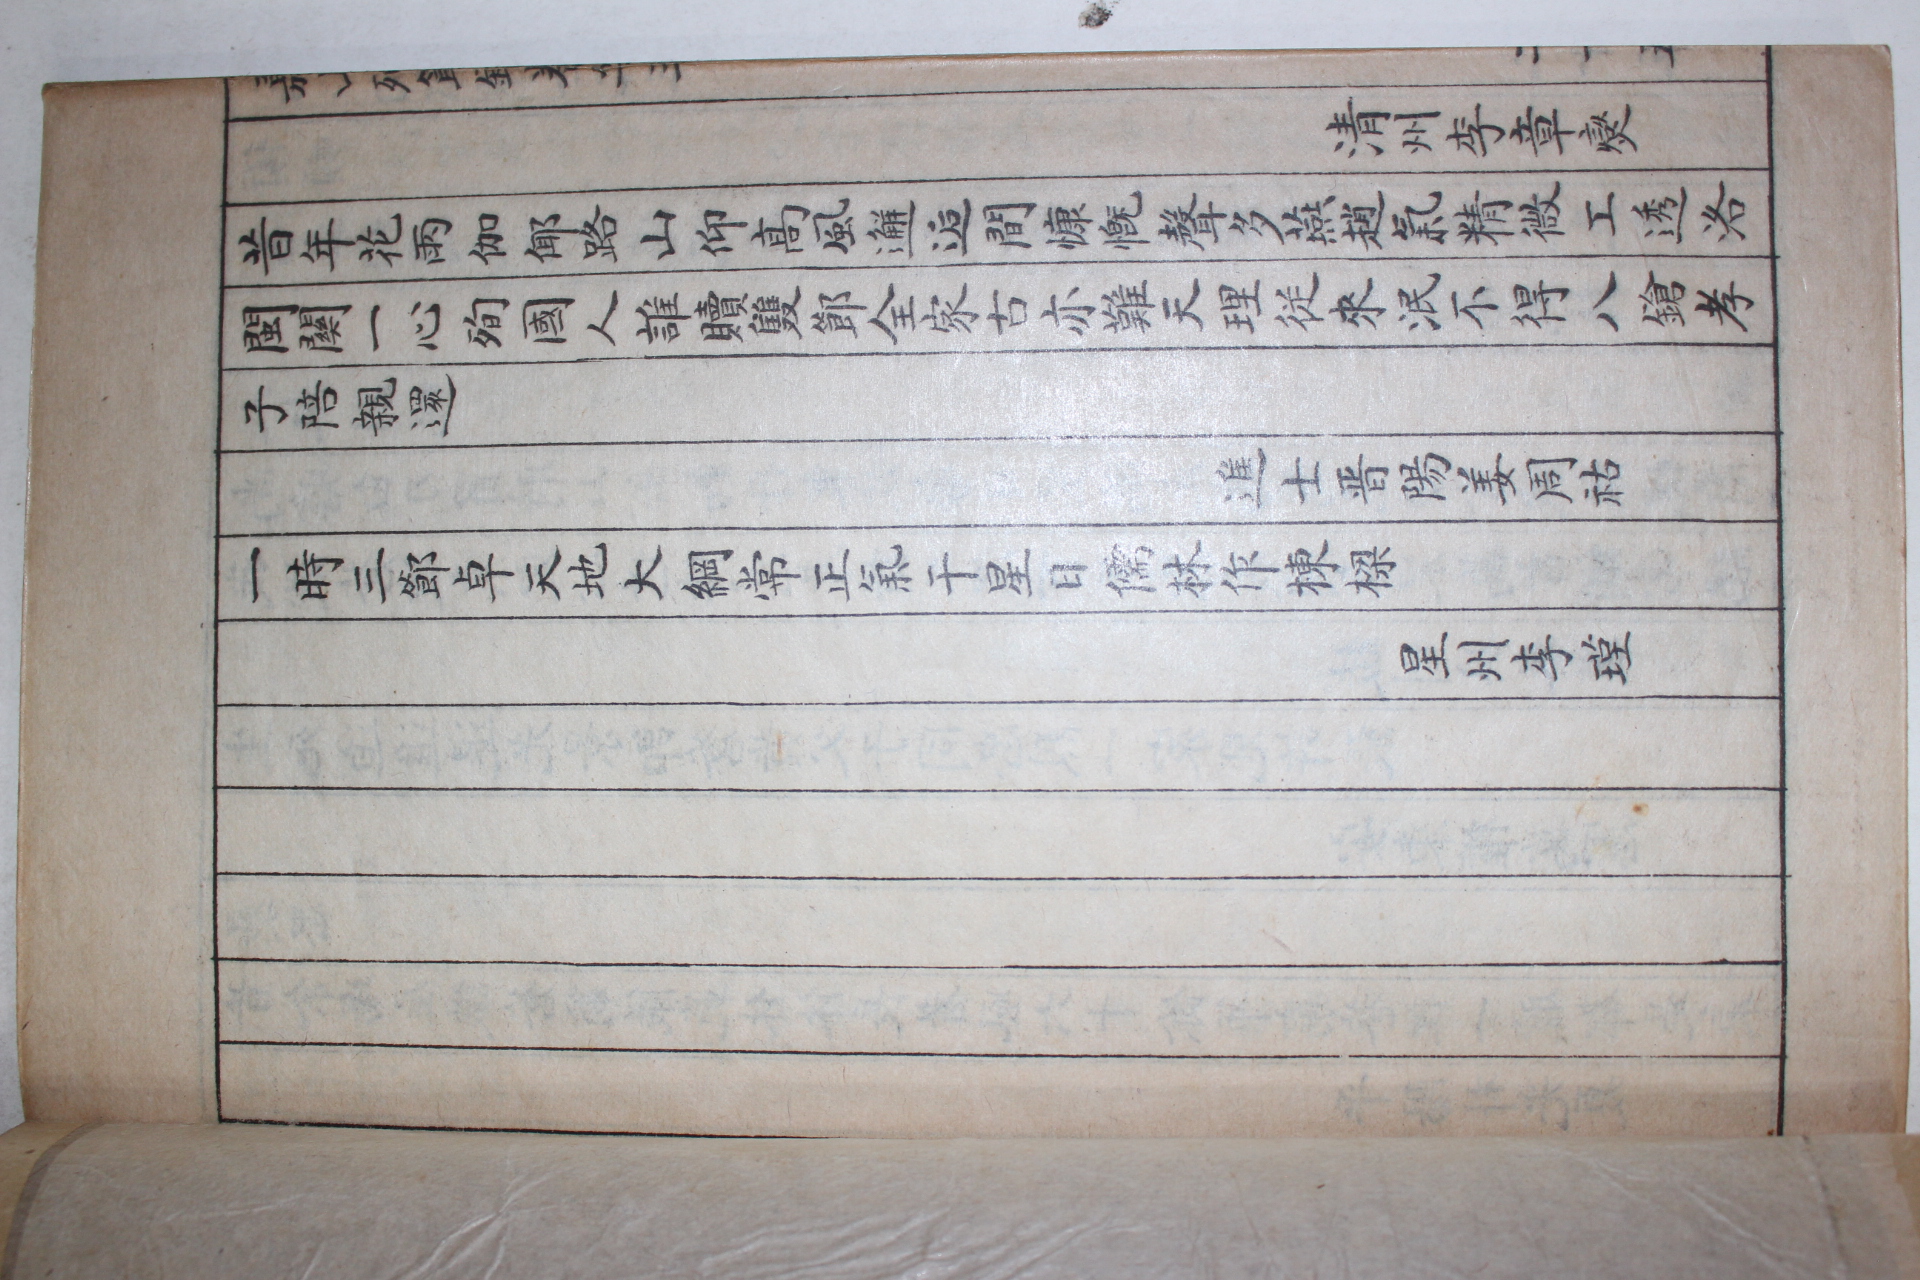 嘉山死節錄卷之三
二十五
清州李章燮
昔年花雨伽倻路山仰高風邂逅間慷慨聲多燕趙氣精微工透洛
閩關一心殉國人誰贖雙節全家古亦難天理從來泯不得八鎗孝
子陪親還
進士晋陽姜周祜
一時三節卓天地大綱常正氣干星日儒林作棟樑
星州李瑾